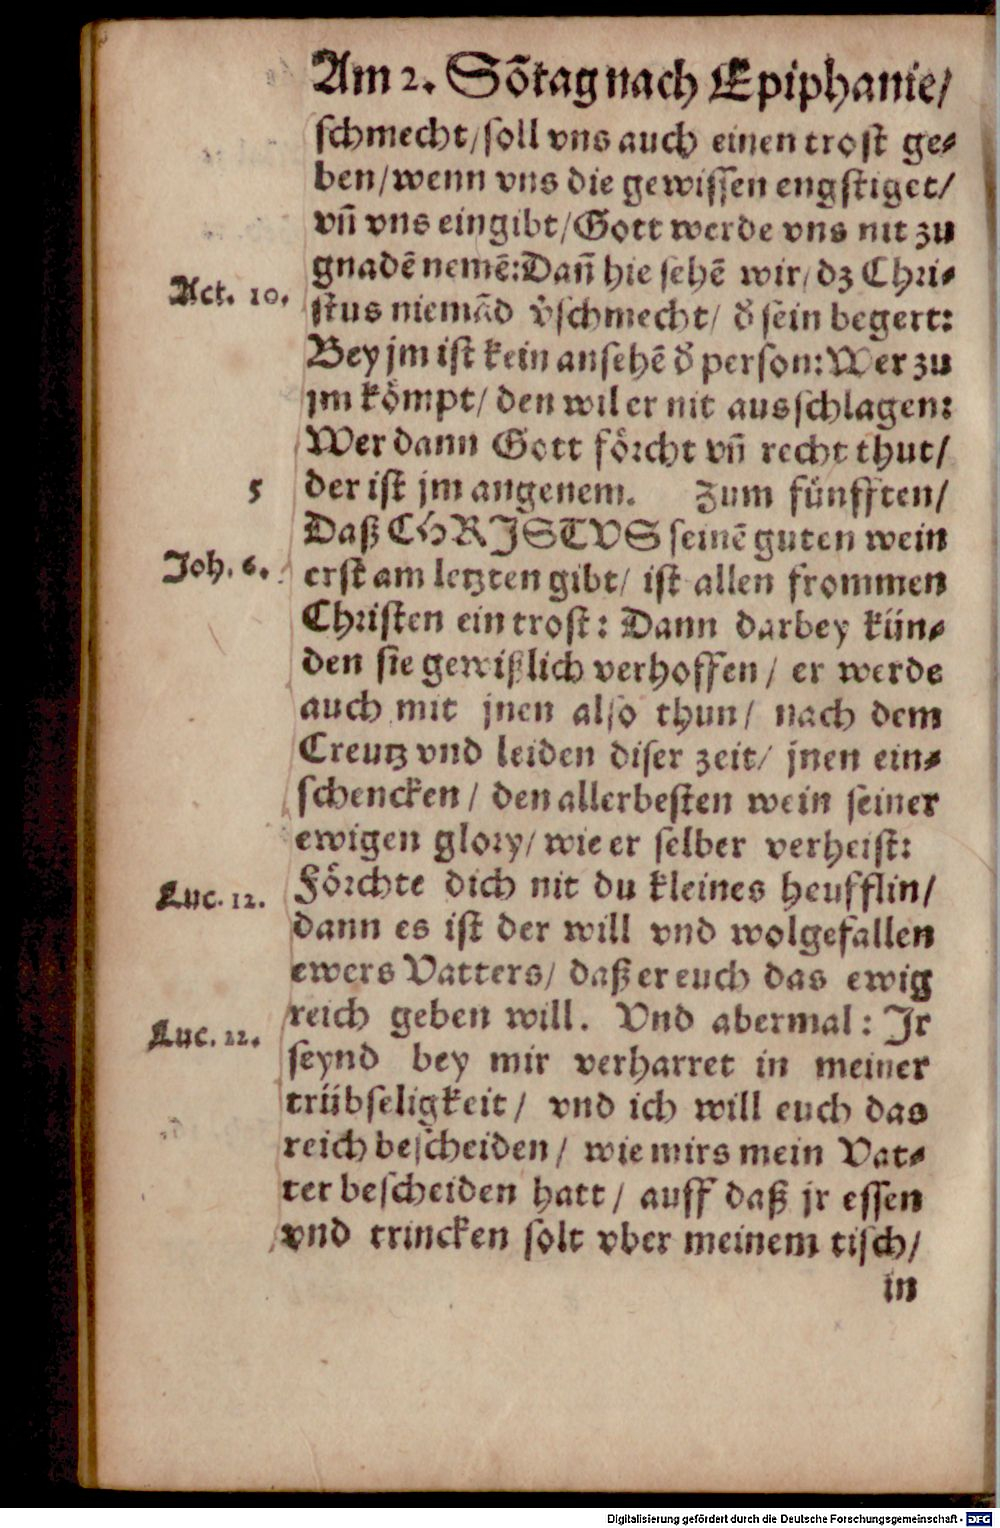 Am 2. Sõtag nach Epiphanie/
schmecht/soll vns auch einen trost ge-
ben/wenn vns die gewissen engstiget/
vñ vns eingibt/Gott werde vns nit zu
gnadẽ nemẽ:Dañ hie sehẽ wir/dz Chri-
Act. 10.
stus niemãd v̊schmecht/ d̊ sein begert:
Bey jm ist kein ansehẽ d̊ person:Wer zu
jm kömpt/ den wil er nit ausschlagen:
Wer dann Gott förcht vñ recht thut/
5
der ist jm angenem. Zum fünfften/
Daß CHRISTVS seinẽ guten wein
Joh. 6.
erst am letzten gibt/ ist allen frommen
Christen ein trost: Dann darbey kün-
den sie gewißlich verhoffen/ er werde
auch mit jnen also thun/ nach dem
Creutz vnd leiden diser zeit/ jnen ein-
schencken/ den allerbesten wein seiner
ewigen glory/ wie er selber verheist:
Luc. 12.
Förchte dich nit du kleines heufflin/
dann es ist der will vnd wolgefallen
ewers Vatters/ daß er euch das ewig
reich geben will. Vnd abermal: Jr
Luc. 22.
seynd bey mir verharret in meiner
trübseligkeit/ vnd ich will euch das
reich bescheiden/ wie mirs mein Vat-
ter bescheiden hatt/ auff daß jr essen
vnd trincken solt vber meinem tisch/
in
Digitalisierung gefördert durch die Deutsche Forschungsgemeinschaft - DFG